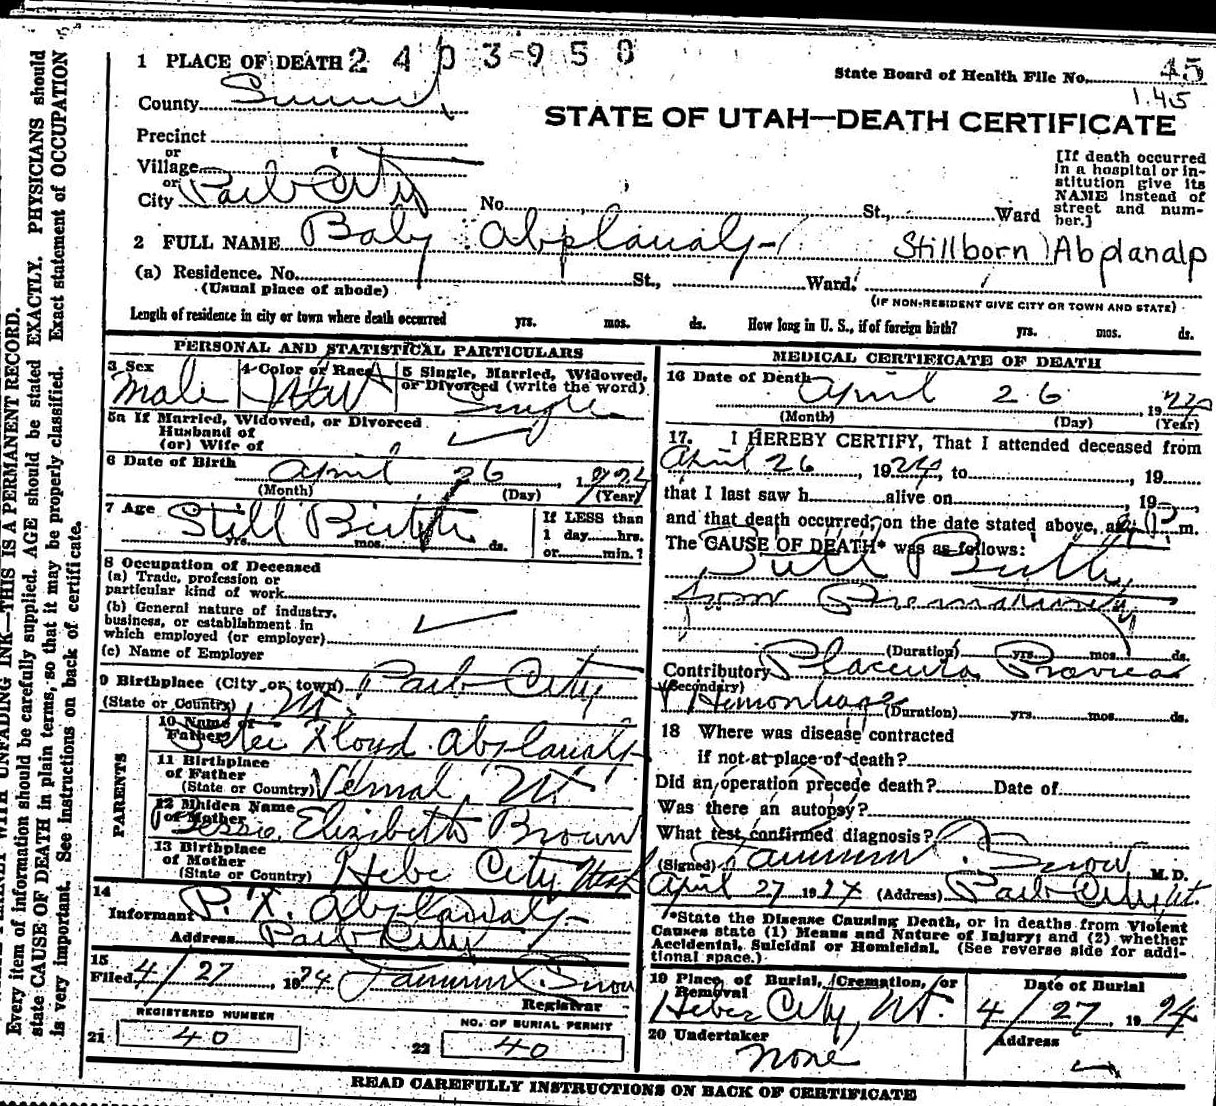 1 PLACE OF DEATH 2403950
State Board of Health File No. 45
145
County Summit
STATE OF UTAH—DEATH CERTIFICATE
Precinct
or
Village
or
City Park City No. St., Ward
[If death occurred in a hospital or institution give its NAME instead of street and number.]
2 FULL NAME Baby Abplanalp Stillborn) Abplanalp
(a) Residence. No. St., Ward.
(Usual place of abode)
(IF NON-RESIDENT GIVE CITY OR TOWN AND STATE)
Length of residence in city or town where death occurred yrs. mos. ds. How long in U. S., if of foreign birth? yrs. mos. ds.
PERSONAL AND STATISTICAL PARTICULARS
3 Sex 4 Color or Race 5 Single, Married, Widowed, or Divorced (write the word)
Male Single
5a If Married, Widowed, or Divorced
Husband of
(or) Wife of
6 Date of Birth April 26, 1924
(Month) (Day) (Year)
7 Age Still Birth
yrs. mos. ds.
If LESS than
1 day hrs.
or min.?
8 Occupation of Deceased
(a) Trade, profession or
particular kind of work
(b) General nature of industry,
business, or establishment in
which employed (or employer)
(c) Name of Employer
9 Birthplace (City or town) Park City
(State or Country) Ut.
PARENTS
10 Name of Father Peter Floyd Abplanalp
11 Birthplace
of Father
(State or Country) Vernal, Ut
12 Maiden Name
of Mother Bessie Elizabeth Brown
13 Birthplace
of Mother
(State or Country) Heber City Utah
14
Informant P. F. Abplanalp
Address Park City
15
Filed 4/27, 1924 Snow
Registrar
REGISTERED NUMBER
21 40
NO. OF BURIAL PERMIT
22 40
MEDICAL CERTIFICATE OF DEATH
16 Date of Death April 26, 1924
(Month) (Day) (Year)
17. I HEREBY CERTIFY, That I attended deceased from
April 26, 1924, to , 19
that I last saw h alive on 19
and that death occurred, on the date stated above, at P. m.
The CAUSE OF DEATH* was as follows:
Still Birth
from Prematurity
(Duration) yrs. mos. ds.
Contributory Placenta Previa
(Secondary)
Hemorrhage (Duration) yrs. mos. ds.
18 Where was disease contracted
if not at place of death?
Did an operation precede death? Date of
Was there an autopsy?
What test confirmed diagnosis?
(Signed) Snow M. D.
April 27 1924 (Address) Park City, Ut.
*State the Disease Causing Death, or in deaths from Violent
Causes state (1) Means and Nature of Injury; and (2) whether
Accidental, Suicidal or Homicidal. (See reverse side for addi-
tional space.)
19 Place of Burial, Cremation, or
Removal
Heber City, Ut.
Date of Burial
4/27, 1924
20 Undertaker
none
Address
READ CAREFULLY INSTRUCTIONS ON BACK OF CERTIFICATE
WITH UNFADING INK—THIS IS A PERMANENT RECORD.
Every item of information should be carefully supplied. AGE should be stated EXACTLY. PHYSICIANS should
state CAUSE OF DEATH in plain terms, so that it may be properly classified. Exact statement of OCCUPATION
is very important. See instructions on back of certificate.